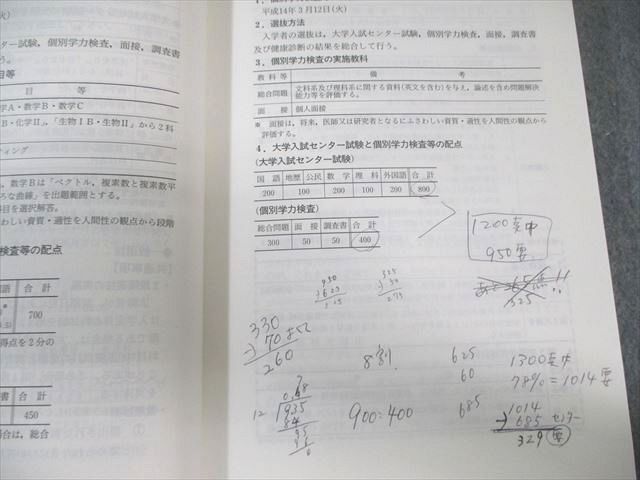 ター試験，個別学力検査，面接，調査書
目等
目 等
学A・数学B・数学C
B・化学II」，「生物ⅠB・生物II」から２科
数学Bは「ベクトル，複素数と複素数平
ろな曲線」を出題範囲とする。
科目を選択解答。
わしい資質・適性を人間性の観点から段階
検査等の配点
語 合 計
700
得点を２分の
書 合 計
450
場合は，総合
平成14年３月12日(火)
２．選抜方法
入学者の選抜は，大学入試センター試験，個別学力検査，面接，調査書
及び健康診断の結果を総合して行う。
３．個別学力検査の実施教科
教 科 等 備 考
総合問題 文科系及び理科系に関する資料(英文を含む)を与え，論述を含め問題解決
能力等を評価する。
面 接 個人面接
※ 面接は，将来，医師又は研究者となるにふさわしい資質・適性を人間性の観点から
評価する。
４．大学入試センター試験と個別学力検査等の配点
(大学入試センター試験)
国 語 地歴 公民 数 学 理 科 外国語 合 計
200 100 200 100 200 800
(個別学力検査)
総合問題 面 接 調査書 合 計
300 50 50 400
1200点中
950要
950
625
325
325
50
275
325
330
-) 70
260
8割
625
60
685
1300点中
78%=1014要
12
935
84
95
900=400
1014
-) 685 センター
329 要